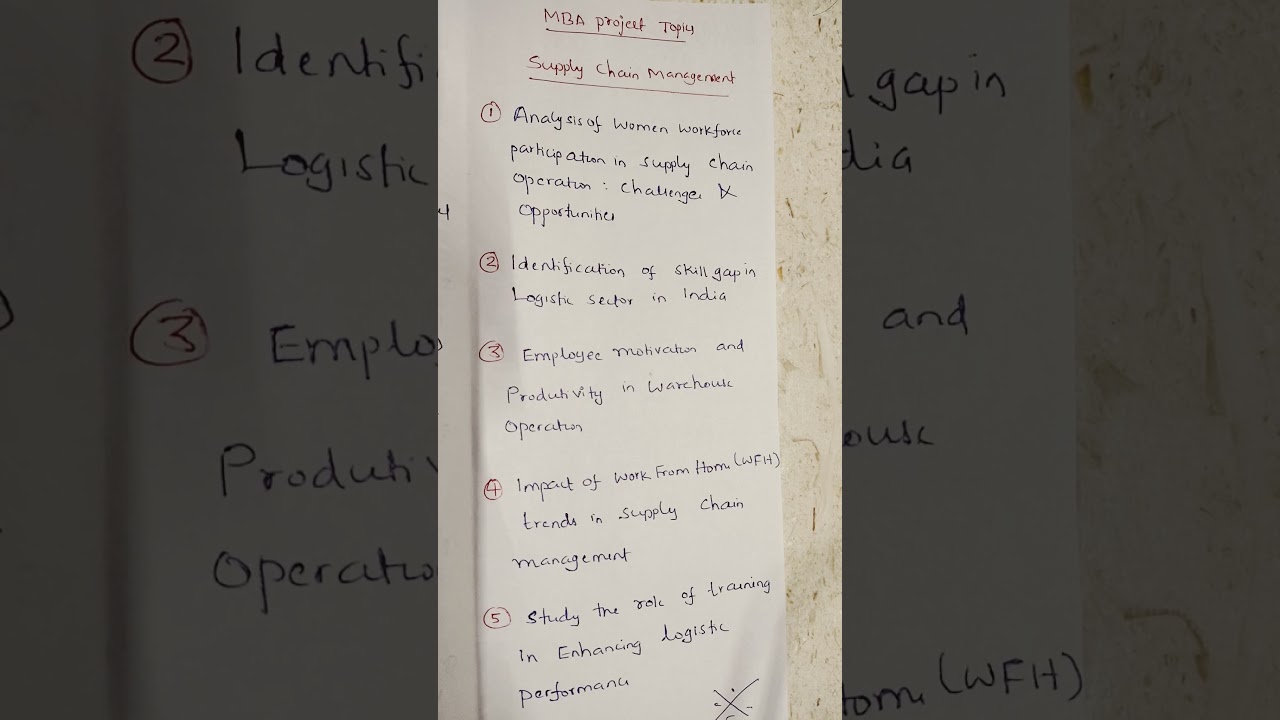 MBA project Topics
Supply Chain Management
① Analysis of Women Workforce
participation in supply chain
Operation : Challenges &
Opportunities
② Identification of skill gap in
Logistic sector in India
③ Employee motivation and
Produtivity in Warehouse
Operation
④ Impact of Work From Home (WFH)
trends in supply chain
management
⑤ Study the role of training
in Enhancing logistic
performance